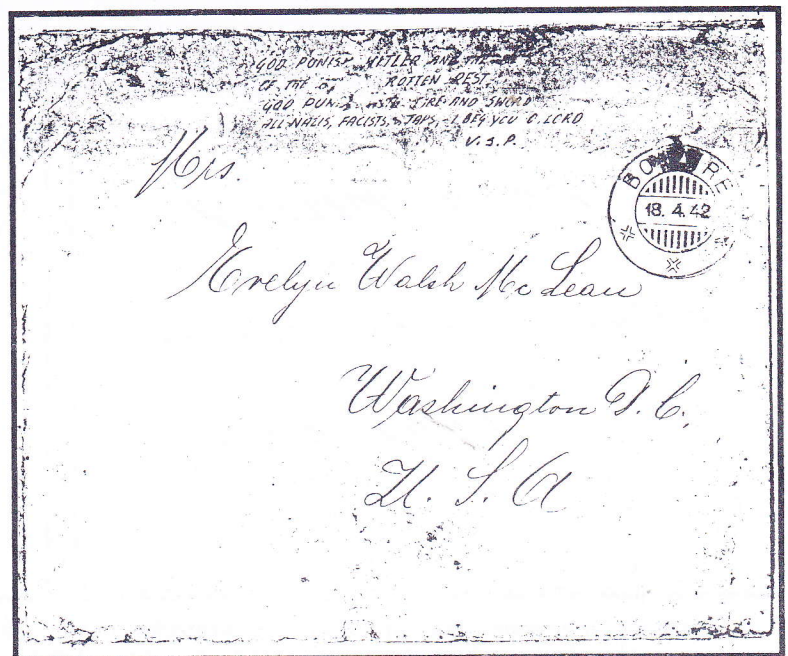 GOD PUNISH HITLER AND THE
OF THE ROTTEN REST
GOD FIRE AND SWORD
ALL NAZIS, FACISTS, JAPS, I BEG YOU O LORD
V.S.P.
BO RE
18.4.42
Mrs.
Evelyn Walsh McLean
Washington D.C.
U.S.A